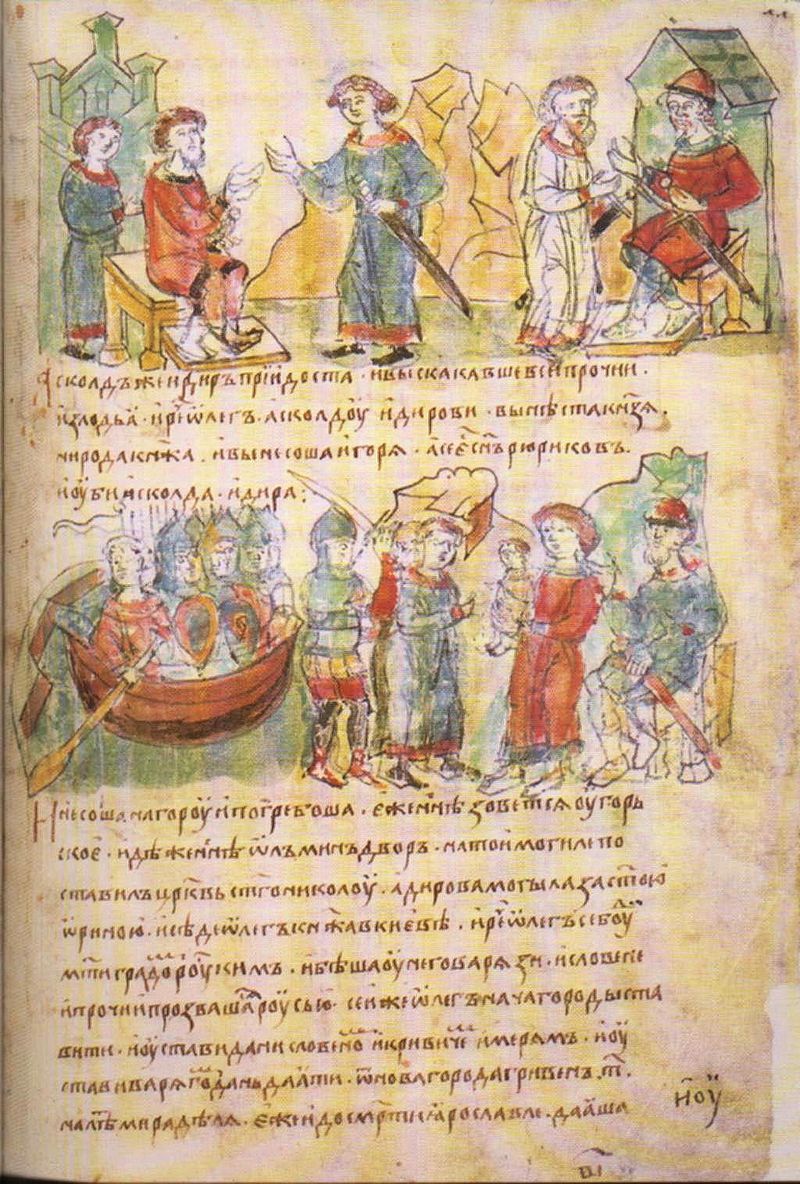 Асколдъ же и Диръ придоста · и выскакавше вси прочии ·
из лодьа · и рⷱ҇е ѡлегъ · асколдоу и дирови · вы нѣста кнѧзѧ ·
ни рода кнѧжа · и вынесоша игорѧ · а се єс҃нъ рюриковъ ·
и оубиша асколда · и дира :
И несоша на гороу и погребоша · єже нн҃ѣ зоветсѧ оугорь
скоє · идѣже нн҃ѣ ѡлъминъ дворъ · на тои могиле по
ставилъ цр҃квь ст҃го николоу · а дирова могыла за ст҃ою
ѡриною · и сѣде ѡлегъ кнѧжа в києвѣ · и рⷱ҇е ѡлегъ се боуⷣ
мт҃и градомъ роускимъ · и бѣша оу него варѧзи · и словене
и прочии прозвашасѧ роусью · сеи же ѡлегъ нача городы ста
вити · и оустави дани словеномъ и кривичемъ и мерѧмъ · и оу
стави варѧгомъ дань даѧти · ѿ новагорода гривенъ · т҃ ·
на лѣⷮ мира дѣлѧ · єже и до смр҃ти ѧрославле · даꙗша
и оу